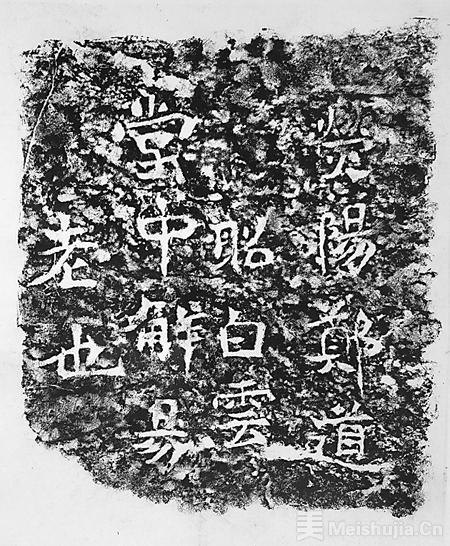 熒陽鄭道
昭白雲
堂中解易
老也
美 Meishujia.Cn